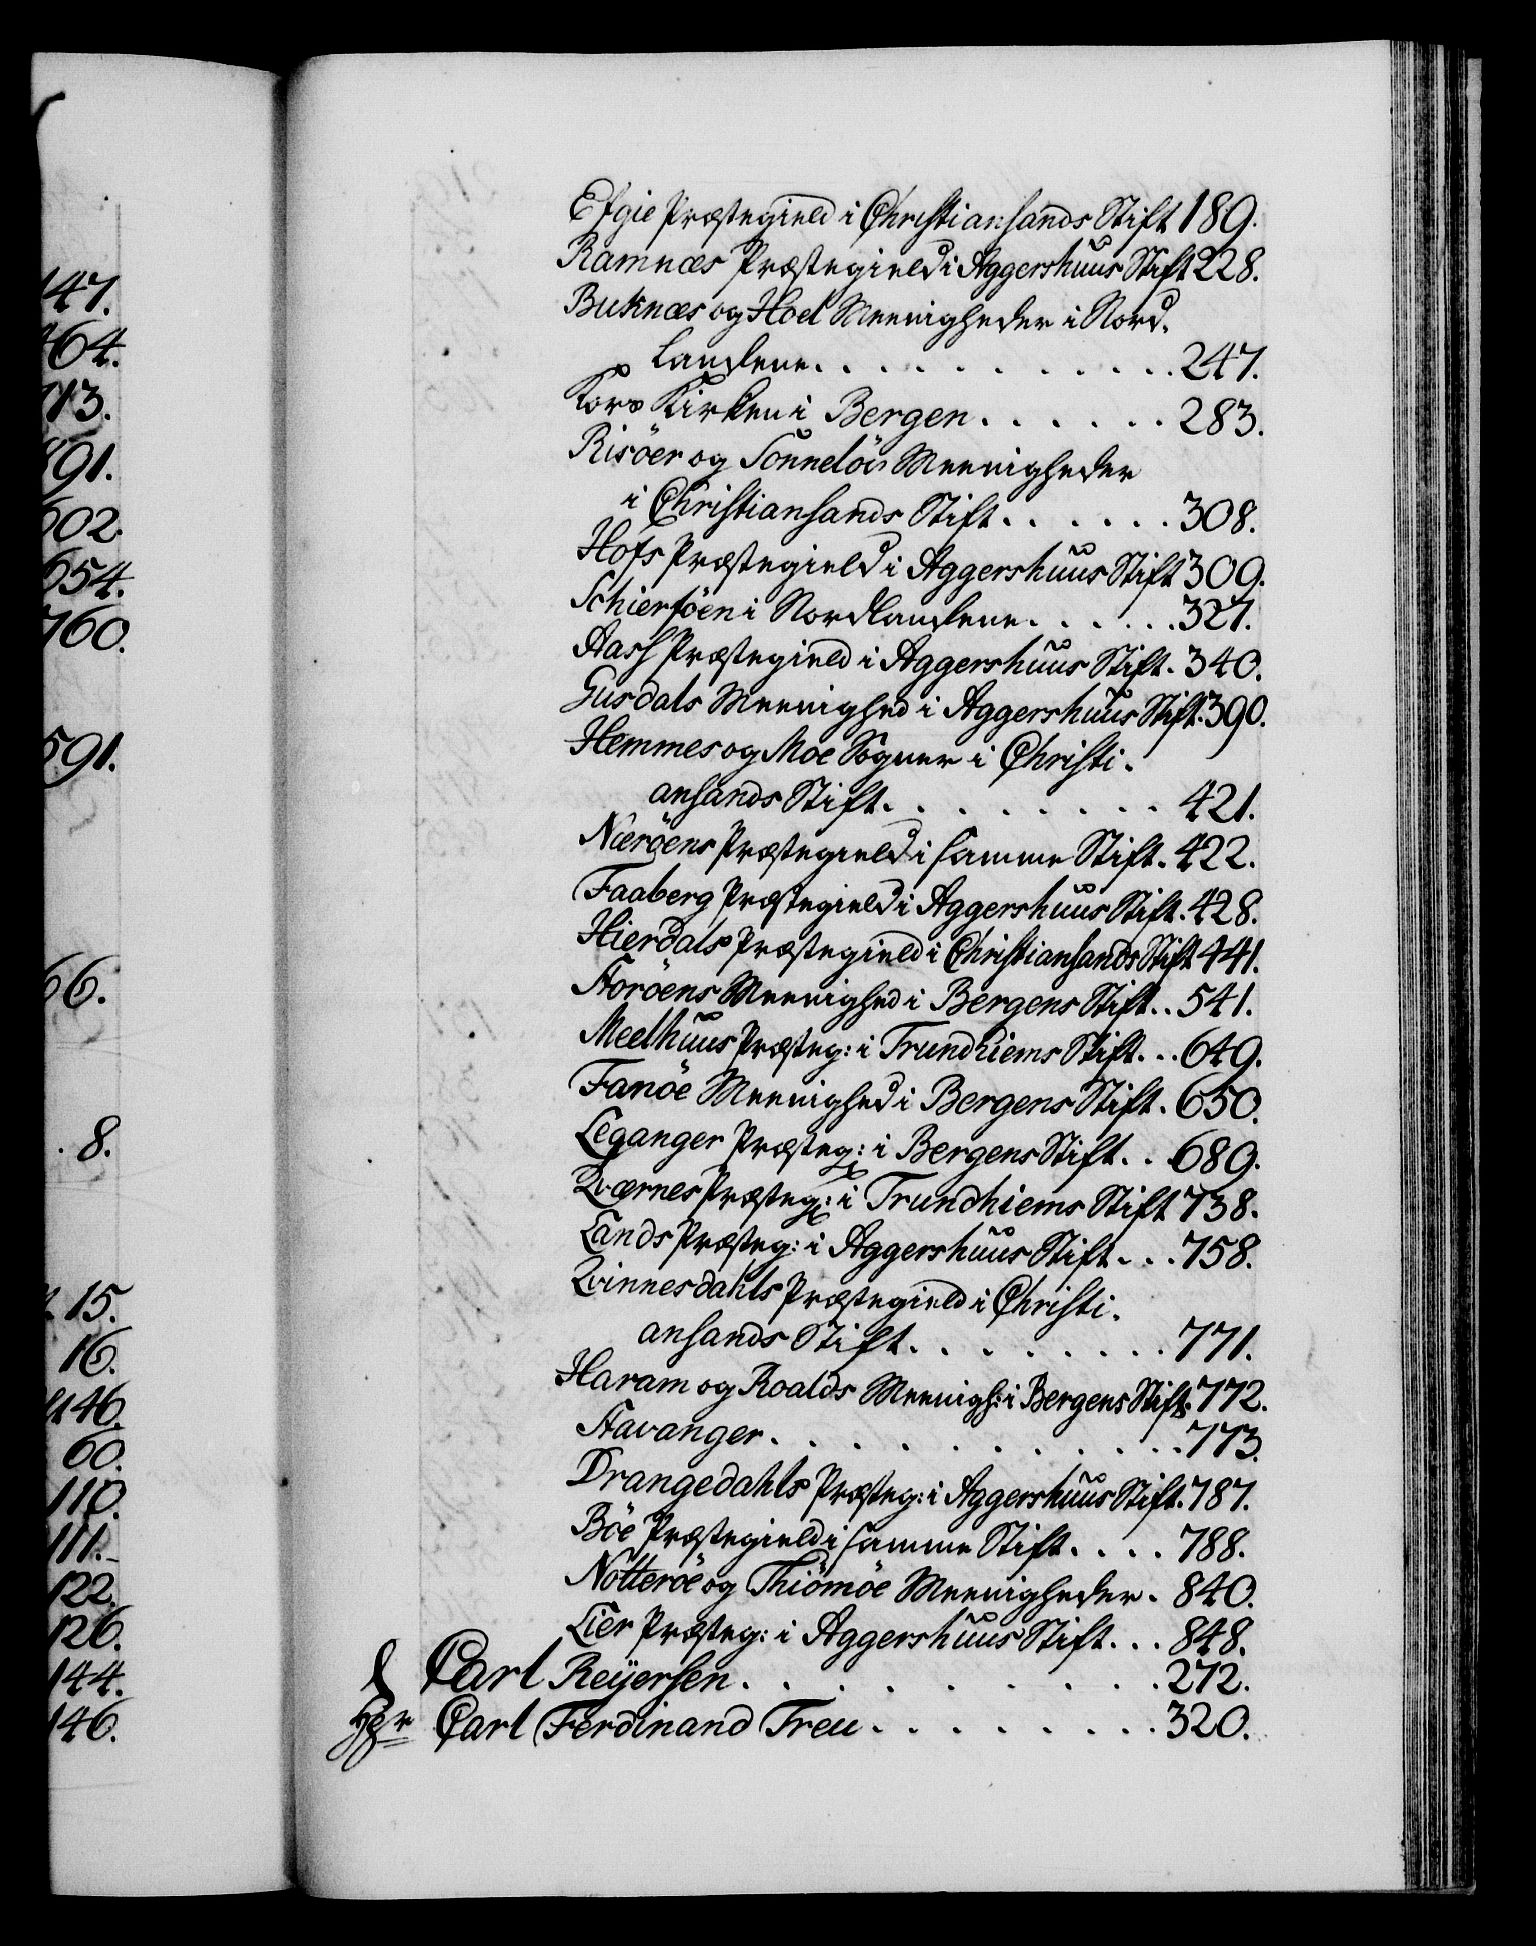 47.
64.
113.
91.
602.
654.
760.
591.
66.
. 8.
15.
16.
146.
60.
110.
111.
122.
126.
144.
146.
Efgie Præstegield i Christiansands Stift 189.
Ramnæs Præstegield i Aggershuus Stift 228.
Buknæs og Hoel Meenigheder i Nord.
Landene. . . . . . . . . . . . 247.
Kors Kirken i Bergen. . . . . . 283.
Risöer og Sönnelöv Meenigheder
i Christiansands Stift. . . . . . 308.
Hofs Præstegield i Aggershuus Stift 309.
Schierföen i Nordlandene. . . . . . 327.
Aash Præstegield i Aggershuus Stift. 340.
Gusdals Meenighed i Aggershuus Stift. 390.
Hemmes og Moe Sogner i Christi.
ansands Stift. . . . . . . . . 421.
Nærøens Præstegield i samme Stift. 422.
Faaberg Præstegield i Aggershuus Stift. 428.
Hierdals Præstegield i Christiansands Stift 441.
Storöens Meenighed i Bergens Stift. . 541.
Meelhuus Præsteg: i Trundhiems Stift. . . 649.
Fanöe Meenighed i Bergens Stift. 650.
Leganger Præsteg: i Bergens Stift. . . 689.
Qværnes Præsteg: i Trundhiems Stift 738.
Lands Præsteg: i Aggershuus Stift. . . 758.
Qvinnesdahls Præstegield i Christi.
ansands Stift. . . . . . . . . 771.
Haram og Roalds Meenigh: i Bergens Stift. 772.
Stavanger. . . . . . . . . . 773.
Drangedahls Præsteg: i Aggershuus Stift. 787.
Böe Præstegield i samme Stift. . . . 788.
Nötteröe og Thiömöe Meenigheder. 840.
Lier Præsteg: i Aggershuus Stift. . . 848.
Carl Reÿersen. . . . . . . . . . 272.
Carl Ferdinand Treu. . . . . . . . 320.